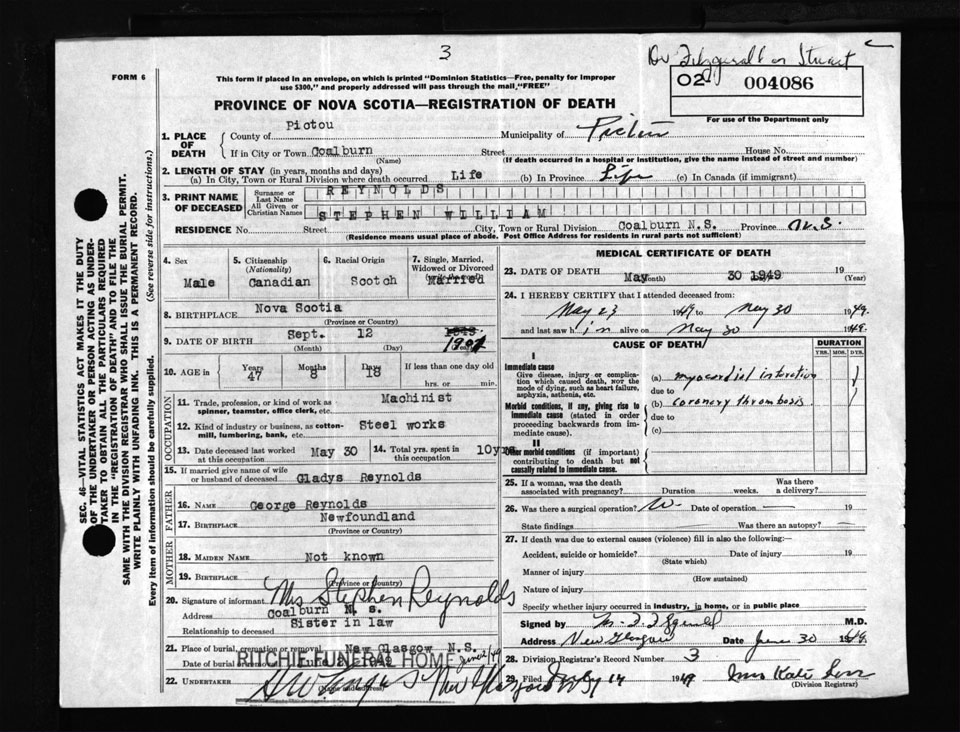 3
Dr Fitzgerald or Stuart
FORM 6
This form if placed in an envelope, on which is printed "Dominion Statistics—Free, penalty for improper
use $300," and properly addressed will pass through the mail, "FREE"
02 004086
For use of the Department only
PROVINCE OF NOVA SCOTIA—REGISTRATION OF DEATH
1. PLACE OF DEATH
County of Pictou Municipality of Pictou
If in City or Town Coalburn Street House No.
(Name) (If death occurred in a hospital or institution, give the name instead of street and number)
2. LENGTH OF STAY (in years, months and days)
(a) In City, Town or Rural Division where death occurred Life (b) In Province Life (c) In Canada (if immigrant)
3. PRINT NAME OF DECEASED
Surname or Last Name REYNOLDS
All Given or Christian Names STEPHEN WILLIAM
RESIDENCE No. Street City, Town or Rural Division Coalburn N.S. Province N.S.
(Residence means usual place of abode. Post Office Address for residents in rural parts not sufficient)
4. Sex Male
5. Citizenship (Nationality) Canadian
6. Racial Origin Scotch
7. Single, Married, Widowed or Divorced Married
8. BIRTHPLACE Nova Scotia
(Province or Country)
9. DATE OF BIRTH Sept. 12 1901
(Month) (Day)
10. AGE in Years 47 Months 8 Days 18 If less than one day old
hrs. or min.
OCCUPATION
11. Trade, profession, or kind of work as spinner, teamster, office clerk, etc. Machinist
12. Kind of industry or business, as cotton-mill, lumbering, bank, etc. Steel works
13. Date deceased last worked at this occupation May 30
14. Total yrs. spent in this occupation 10yrs
15. If married give name of wife or husband of deceased Gladys Reynolds
FATHER
16. NAME George Reynolds
17. BIRTHPLACE Newfoundland
(Province or Country)
MOTHER
18. MAIDEN NAME Not known
19. BIRTHPLACE
(Province or Country)
20. Signature of informant Mrs Stephen Reynolds
Address Coalburn N. s.
Relationship to deceased Sister in law
21. Place of burial, cremation or removal New Glasgow N.S.
Date of burial or removal June 2 1949
RITCHIE FUNERAL HOME
22. UNDERTAKER New Glasgow
(Name and address)
MEDICAL CERTIFICATE OF DEATH
23. DATE OF DEATH May 30 1949 19
(Month) (Year)
24. I HEREBY CERTIFY that I attended deceased from:
May 23 1949 to May 30 1949.
and last saw him alive on May 30 1949.
CAUSE OF DEATH
DURATION
YRS. MOS. DYS.
I
Immediate cause
Give disease, injury or complication which caused death, NOT the mode of dying, such as heart failure, asphyxia, asthenia, etc.
(a)
due to
Morbid conditions, if any, giving rise to immediate cause (stated in order proceeding backwards from immediate cause).
(b) coronary thrombosis.
due to
(c)
II
Other morbid conditions (if important) contributing to death but not causally related to immediate cause.
25. If a woman, was the death associated with pregnancy? Duration weeks. Was there a delivery?
26. Was there a surgical operation? Date of operation 19
State findings Was there an autopsy?
27. If death was due to external causes (violence) fill in also the following:—
Accident, suicide or homicide? Date of injury 19
(State which)
Manner of injury
(How sustained)
Nature of injury
Specify whether injury occurred in industry, in home, or in public place
Signed by M.D.
Address New Glasgow Date June 30 1949.
28. Division Registrar's Record Number 3
29. Filed July 14 1949 Mrs Kate
(Division Registrar)
SEC. 46—VITAL STATISTICS ACT MAKES IT THE DUTY
OF THE UNDERTAKER OR PERSON ACTING AS UNDER-
TAKER TO OBTAIN ALL THE PARTICULARS REQUIRED
IN THE "REGISTRATION OF DEATH" AND TO FILE THE
SAME WITH THE DIVISION REGISTRAR WHO SHALL ISSUE THE BURIAL PERMIT.
WRITE PLAINLY WITH UNFADING INK. THIS IS A PERMANENT RECORD.
Every item of information should be carefully supplied. (See reverse side for instructions.)